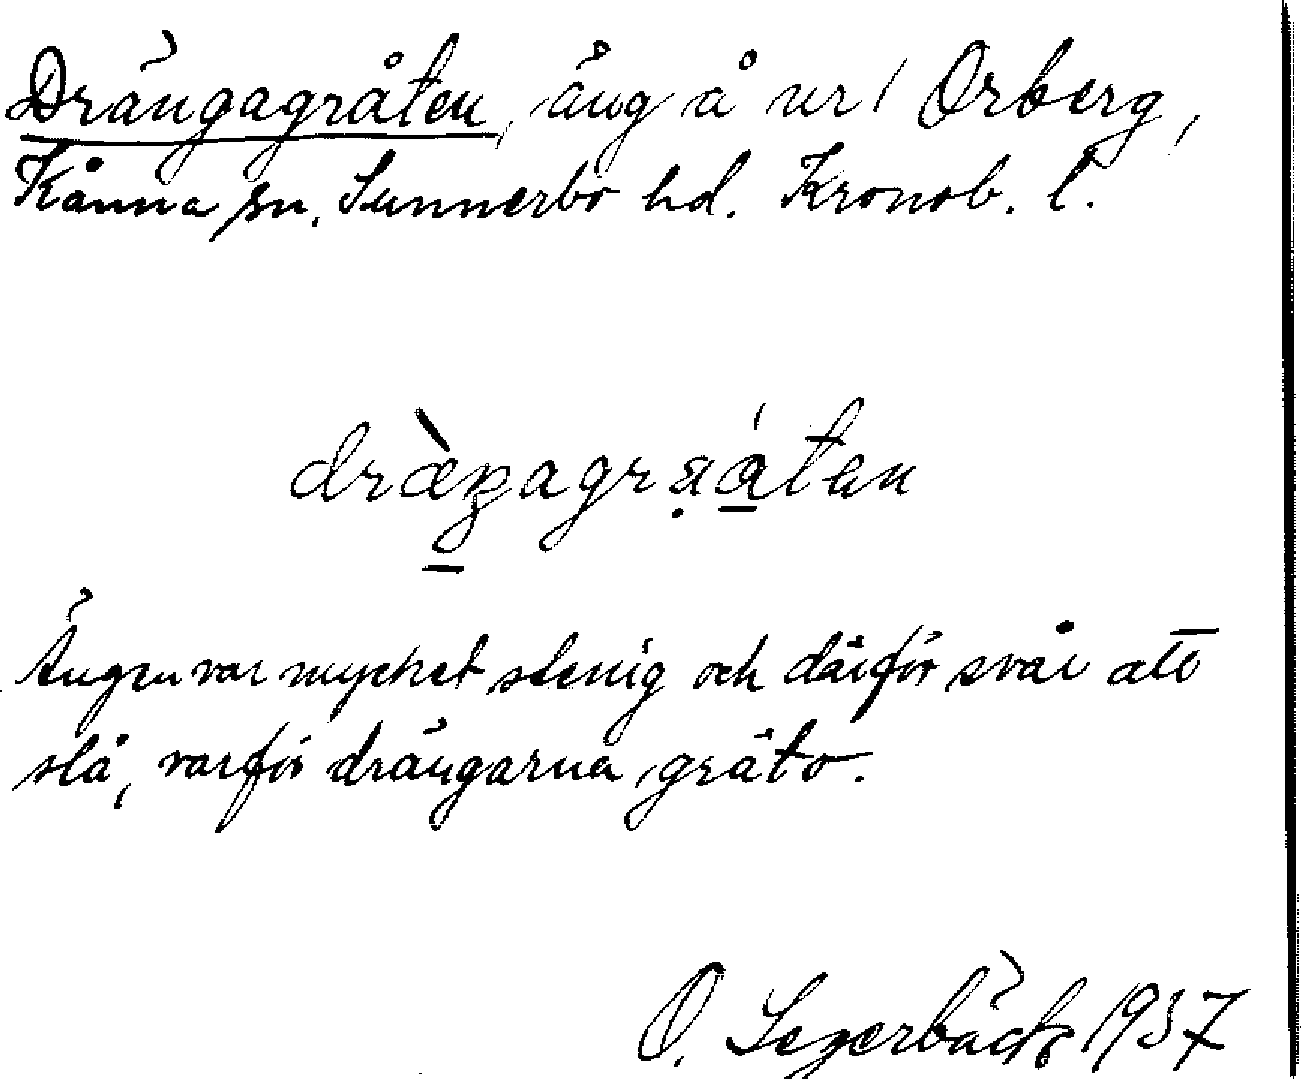 Drängagråten, äng å nr 1 Orberg,
Kånna sn. Sunnerbo hd. Kronob. l.
dræ̀ŋagråáten
Ängen var mycket stenig och därför svår att
slå, varför drängarna gräto.
O. Segerbäck 1937